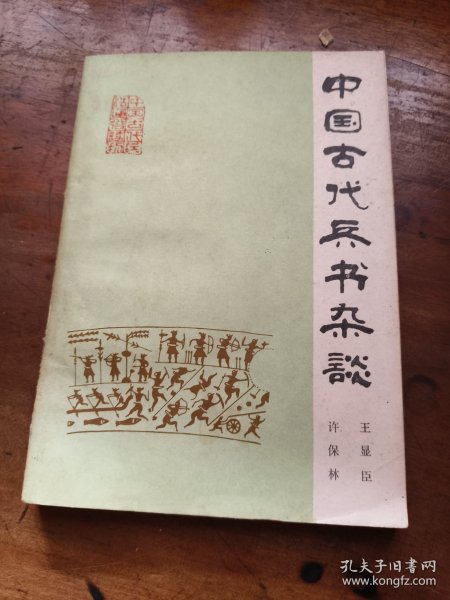 中国古代兵书杂谈
王显臣
许保林
孔夫子旧书网
www.kongfz.com